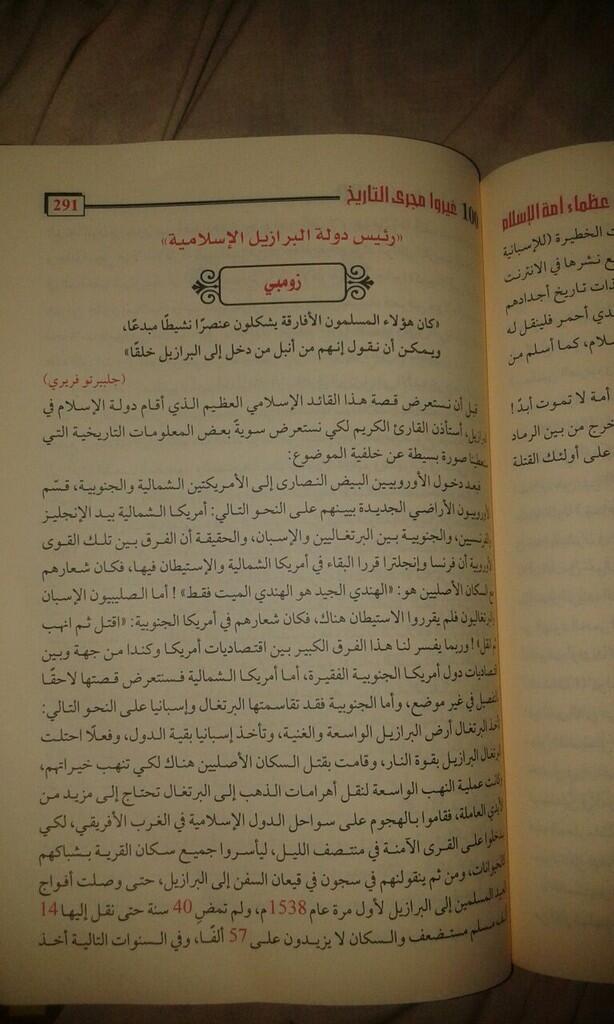 291
100 غيروا مجرى التاريخ
«رئيس دولة البرازيل الإسلامية»
زومبي
«كان هؤلاء المسلمون الأفارقة يشكلون عنصرًا نشيطًا مبدعًا،
ويمكن أن نقول إنهم من أنبل من دخل إلى البرازيل خلقًا»
(جلبيرتو فريري)
قبل أن نستعرض قصة هذا القائد الإسلامي العظيم الذي أقام دولة الإسلام في
البرازيل، أستأذن القارئ الكريم لكي نستعرض سويةً بعض المعلومات التاريخية التي
ستعطينا صورة بسيطة عن خلفية الموضوع:
فبعد دخول الأوروبيين البيض النصارى إلى الأمريكتين الشمالية والجنوبية، قسّم
الأوروبيون الأراضي الجديدة بينهم على النحو التالي: أمريكا الشمالية بيد الإنجليز
والفرنسيين، والجنوبية بين البرتغاليين والإسبان، والحقيقة أن الفرق بين تلك القوى
الأوروبية أن فرنسا وإنجلترا قررا البقاء في أمريكا الشمالية والإستيطان فيها، فكان شعارهم
مع السكان الأصليين هو: «الهندي الجيد هو الهندي الميت فقط»! أما الصليبيون الإسبان
والبرتغاليون فلم يقرروا الاستيطان هناك، فكان شعارهم في أمريكا الجنوبية: «اقتل ثم انهب
ثم انقل»! وربما يفسر لنا هذا الفرق الكبير بين اقتصاديات أمريكا وكندا من جهة وبين
اقتصاديات دول أمريكا الجنوبية الفقيرة، أما أمريكا الشمالية فسنتعرض قصتها لاحقًا
بالتفصيل في غير موضع، وأما الجنوبية فقد تقاسمتها البرتغال وإسبانيا على النحو التالي:
تأخذ البرتغال أرض البرازيل الواسعة والغنية، وتأخذ إسبانيا بقية الدول، وفعلًا احتلت
البرتغال البرازيل بقوة النار، وقامت بقتل السكان الأصليين هناك لكي تنهب خيراتهم،
وكانت عملية النهب الواسعة لنقل أهرامات الذهب إلى البرتغال تحتاج إلى مزيد من
الأيدي العاملة، فقاموا بالهجوم على سواحل الدول الإسلامية في الغرب الأفريقي، لكي
يدخلوا على القرى الآمنة في منتصف الليل، ليأسروا جميع سكان القرية بشباكهم
كالحيوانات، ومن ثم ينقولنهم في سجون في قيعان السفن إلى البرازيل، حتى وصلت أفواج
العبيد المسلمين إلى البرازيل لأول مرة عام 1538م، ولم تمض 40 سنة حتى نقل إليها 14
ألف مسلم مستضعف والسكان لا يزيدون على 57 ألفًا، وفي السنوات التالية أخذ
عظماء أمة الإسلام
ت الخطيرة (للإسبانية
ع نشرها في الانترنت
ذات تاريخ أجدادهم
دي أحمر فلينقل له
سلام، كما أسلم من
أمة لا تموت أبدًا!
خرج من بين الرماد
على أولئك القتلة